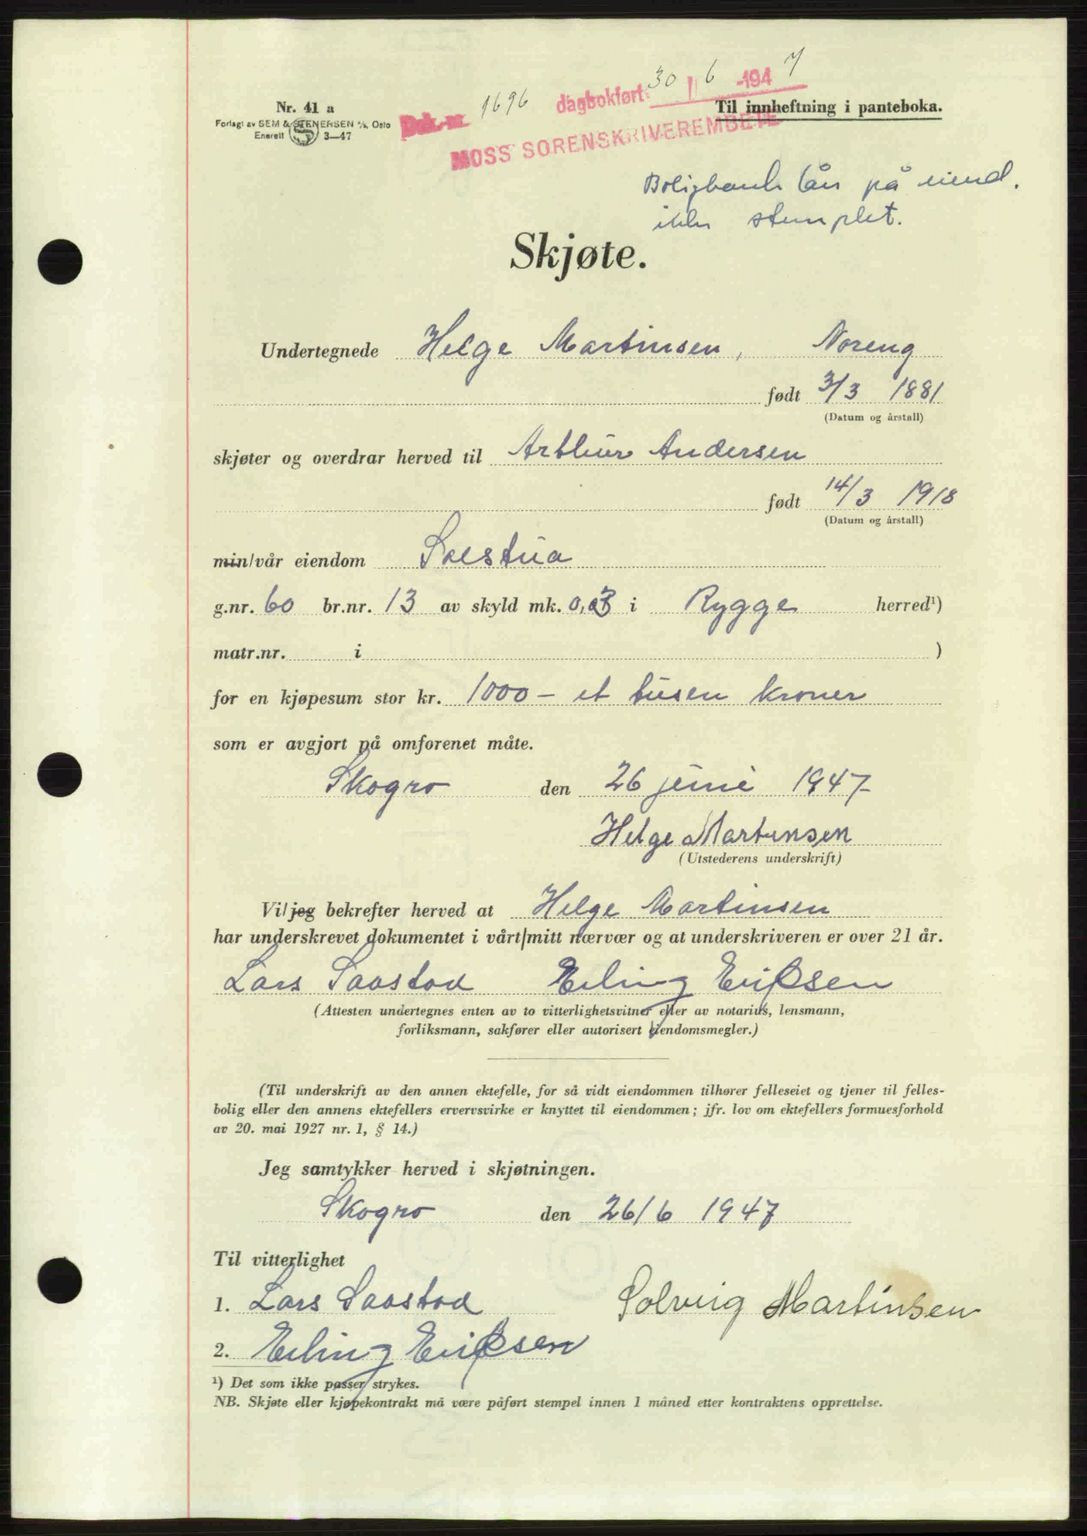 Nr. 41 a
Forlagt av SEM & STENERSEN A/S, Oslo
Enerett S 3—47
Dok.nr. 1696 dagbokført 30/6-1947
MOSS SORENSKRIVEREMBETE
Til innheftning i panteboka.
Boligbank lån på eiend.
ikke stemplet.
Skjøte.
Undertegnede Helge Martinsen, Noreng
født 3/3 1881
(Datum og årstall)
skjøter og overdrar herved til Arthur Andersen
født 14/3 1918
(Datum og årstall)
min/vår eiendom Solstua
g.nr. 60 br.nr. 13 av skyld mk. 0,03 i Rygge herred¹)
matr.nr. i )
for en kjøpesum stor kr. 1000 — et tusen kroner
som er avgjort på omforenet måte.
Skogro den 26 juni 1947
Helge Martinsen
(Utstederens underskrift)
Vi/jeg bekrefter herved at Helge Martinsen
har underskrevet dokumentet i vårt/mitt nærvær og at underskriveren er over 21 år.
Lars Saastad Erling Eriksen
(Attesten undertegnes enten av to vitterlighetsvitner eller av notarius, lensmann,
forliksmann, sakfører eller autorisert eiendomsmegler.)
(Til underskrift av den annen ektefelle, for så vidt eiendommen tilhører felleseiet og tjener til felles-
bolig eller den annens ektefellers ervervsvirke er knyttet til eiendommen; jfr. lov om ektefellers formuesforhold
av 20. mai 1927 nr. 1, § 14.)
Jeg samtykker herved i skjøtningen.
Skogro den 26/6 1947
Til vitterlighet
1. Lars Saastad Solveig Martinsen
2. Erling Eriksen
¹) Det som ikke passer strykes.
NB. Skjøte eller kjøpekontrakt må være påført stempel innen 1 måned etter kontraktens opprettelse.